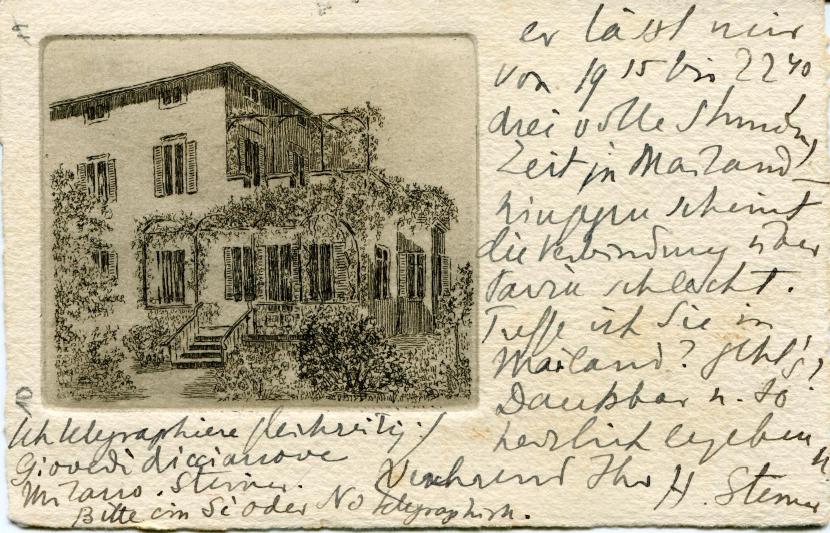 er lässt mir
von 19 15 bis 22 40
drei volle Stunden
Zeit in Mailand –
hingegen scheint
die Verbindung über
schlecht.
Treffe ich Sie in
Mailand? Geht's?
Dankbar u. so
herzlich ergeben u.
Verehrend Ihr H. Steiner
Ich telegraphiere gleichzeitig:
Giovedi diccianove
Milano. Steiner.
Bitte ein Si oder No telegraphisch.
10